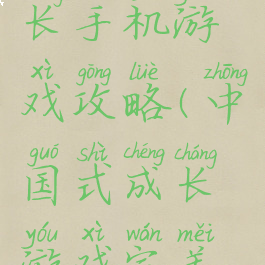 长手机游
xì gōng lüè zhōng
戏攻略(中
guó shì chéng cháng
国式成长
yóu xì wán měi
游戏完美